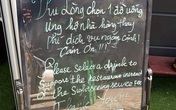 Vui lòng chọn 1 đồ uống
ủng hộ nhà hàng thay
phí dịch vụ ngắm cảnh!
Cảm Ơn !!!
Please Select a drink to
support the restaurant instead
the Sightseeing service fee